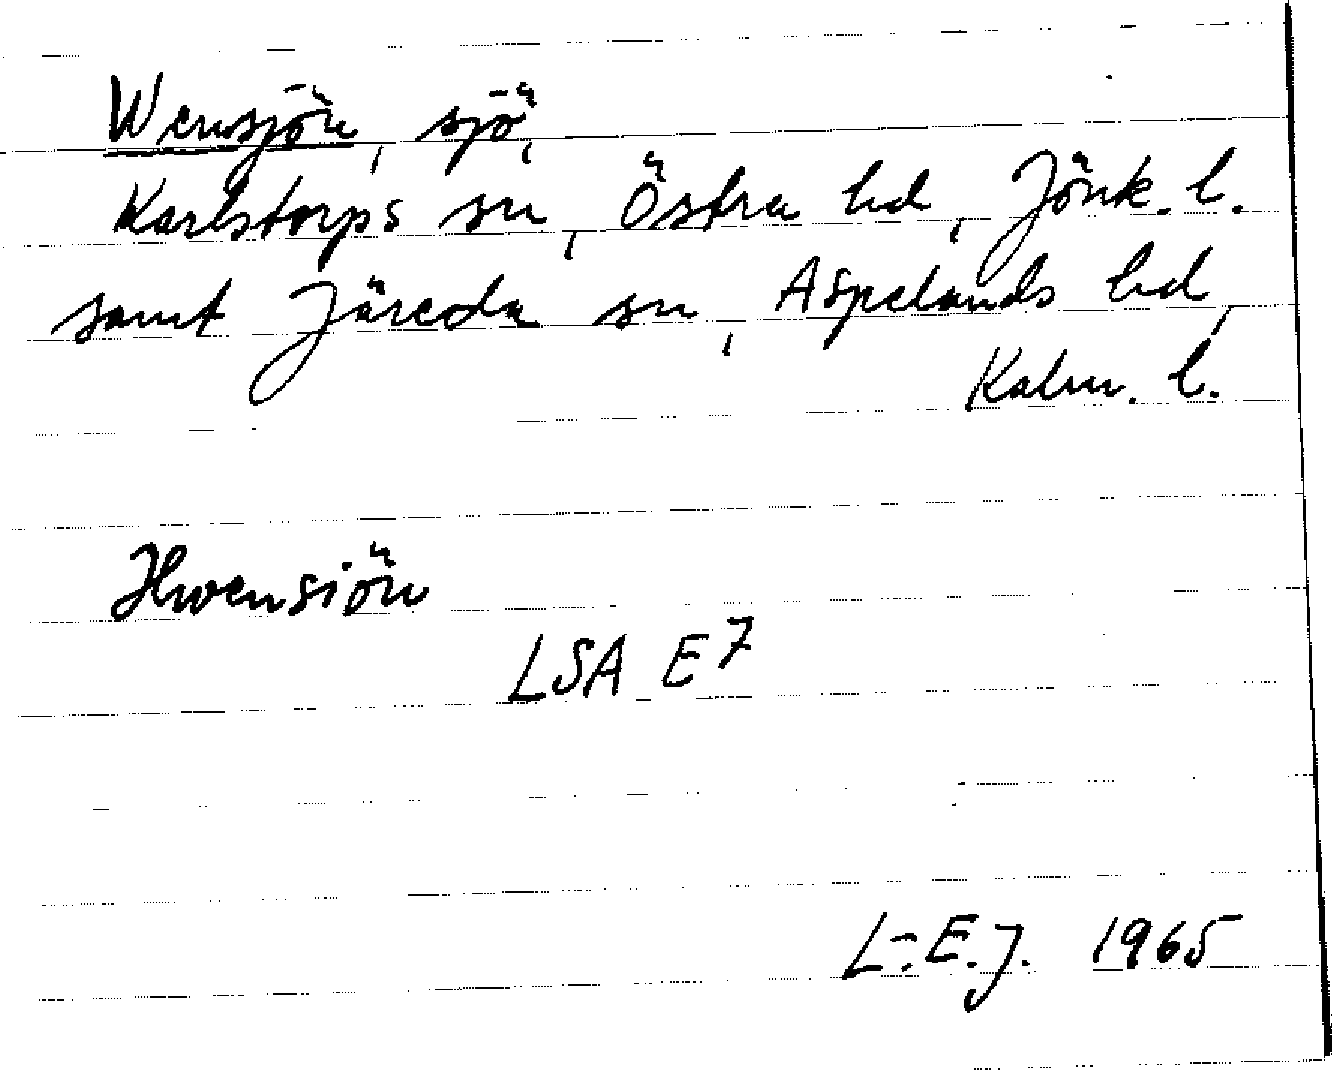 Wensjön, sjö,
Karlstorps sn, Östra hd, Jönk. l.
samt Järeda sn, Aspelands hd,
Kalm. l.
Hwensiön
LSA E7
L-E.J. 1965